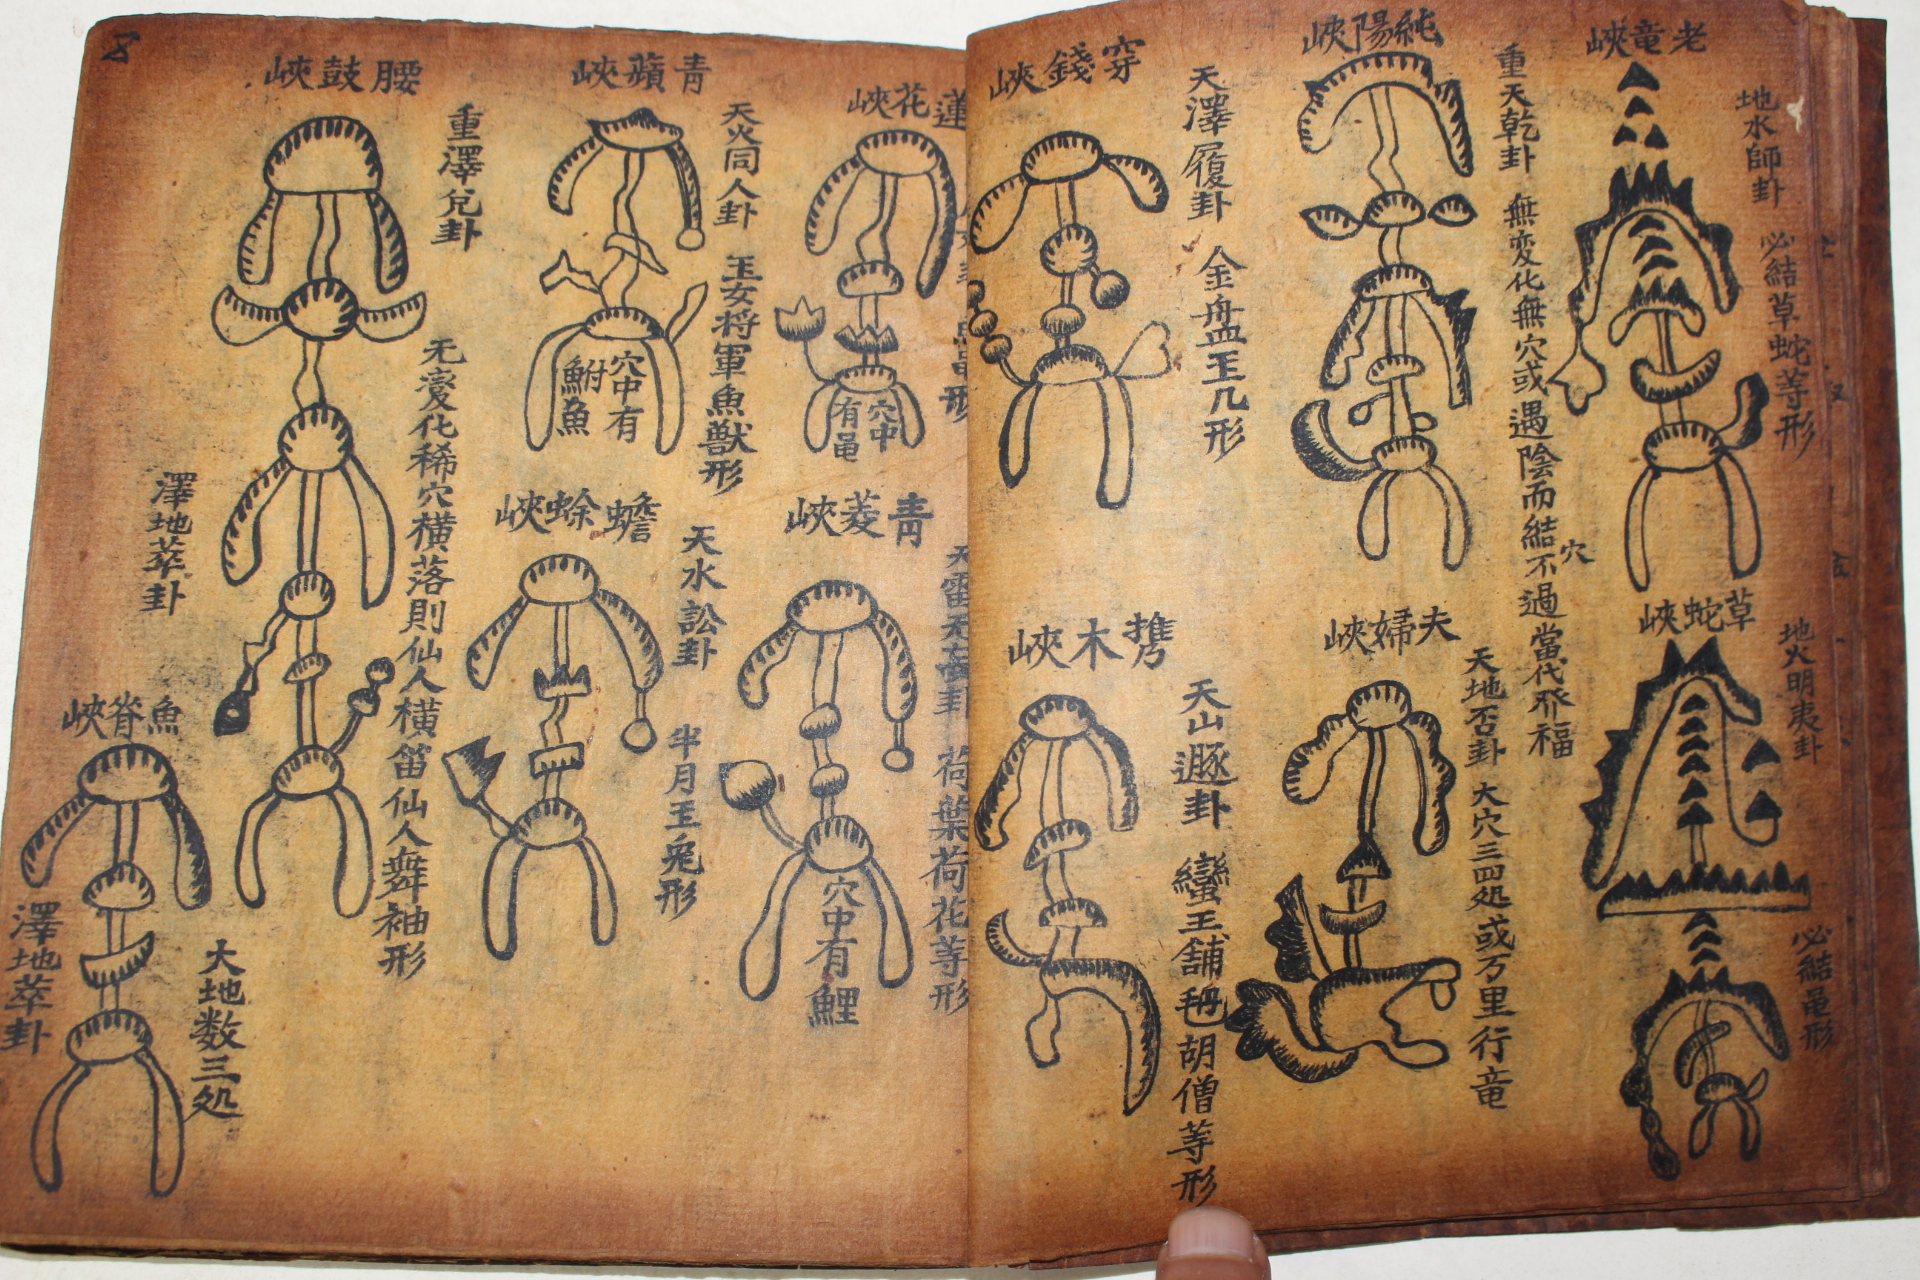 老竜峽
地水師卦 必結草蛇等形
草蛇峽
地火明夷卦
必結黽形
純陽峽
重天乾卦 無変化無穴或遇陰而結穴不過當代發福
夫婦峽
天地否卦 大穴三四処或万里行竜
穿錢峽
天澤履卦 金盤玉几形
携木峽
天山遯卦 蠻王舖氊胡僧等形
蓮花峽
穴中
有黽
青菱峽
天雷无妄卦 荷葉荷花等形
穴中有鯉
青蘋峽
天火同人卦 玉女将軍魚獸形
穴中有
鮒魚
蟾蜍峽
天水訟卦 半月玉兎形
腰鼓峽
重澤兌卦
无变化稀穴橫落則仙人橫笛仙人舞袖形
澤地萃卦
魚脊峽
大地数三処
澤地萃卦